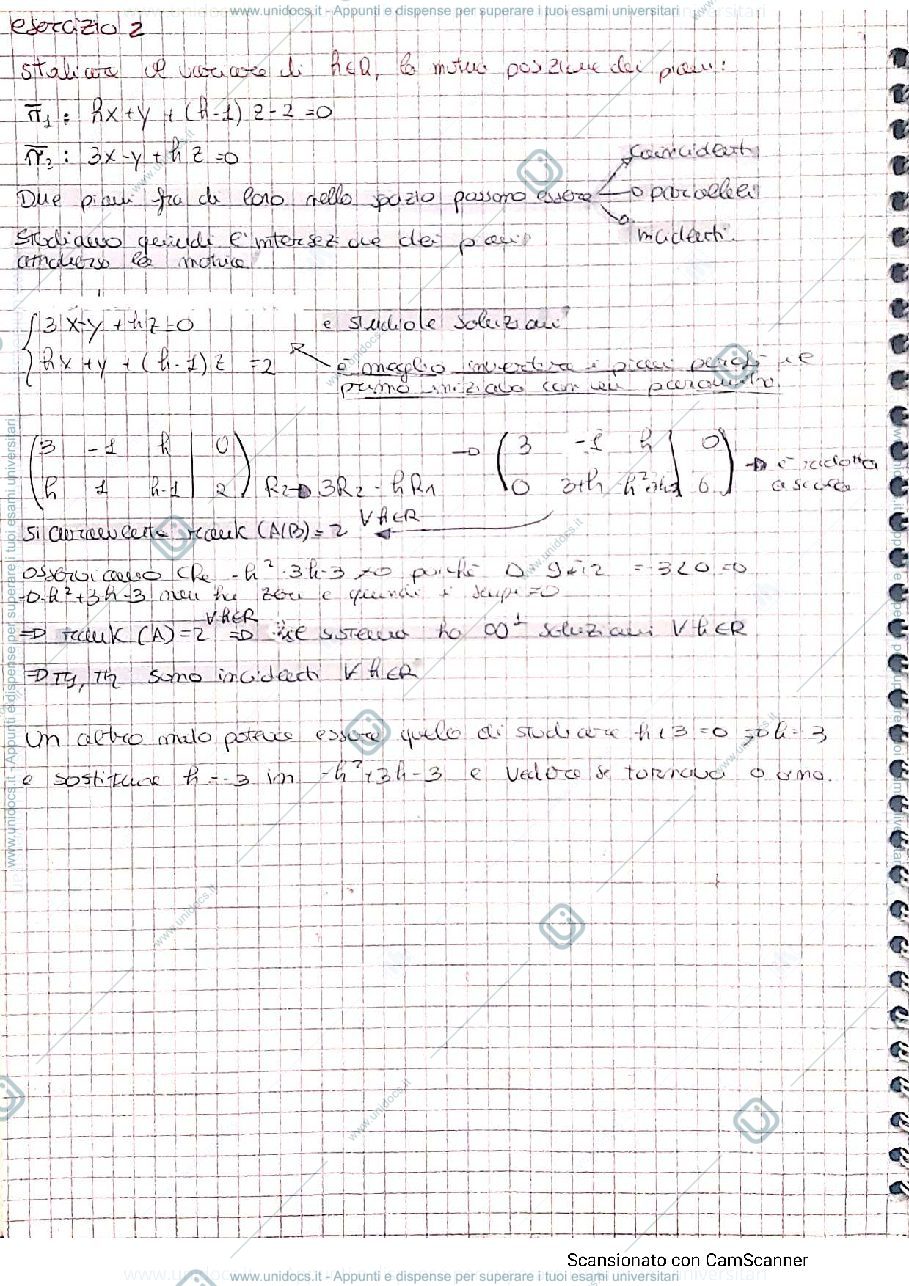 www.unidocs.it - Appunti e dispense per superare i tuoi esami universitari
esercizio 2
stabilire al variare di h∈R, la mutua posizione dei piani:
π1: hx+y+(h-1)z-2=0
π2: 3x-y+hz=0
coincidenti
Due piani fra di loro nello spazio possono essere o paralleli
incidenti.
studiamo quindi l'intersezione dei piani
attraverso la matrice
3x-y+hz=0 e studio le soluzioni
hx+y+(h-1)z=2 è meglio invertire i piani perché il
primo iniziava con un parametro.
(3 -1 h | 0) → (3 -1 h | 0) → è ridotta
(h 1 h-1 | 2) R2→3R2-hR1 (0 3+h | 6) a scala
si chiaramente rank(A|B)=2 ∀h∈R
osserviamo che perché Δ = -3<0 ⇒
-h²+3h-3 non ha zeri e quindi è sempre ≠0
⇒ rank(A)=2 ∀h∈R ⇒ il sistema ha ∞¹ soluzioni ∀h∈R
⇒ π1, π2 sono incidenti ∀h∈R
Un altro modo poteva essere quello di studiare h+3=0 ⇒ h=-3
e sostituire h=-3 in -h²+3h-3 e vedere se tornava o meno.
Scansionato con CamScanner
www.unidocs.it - Appunti e dispense per superare i tuoi esami universitari